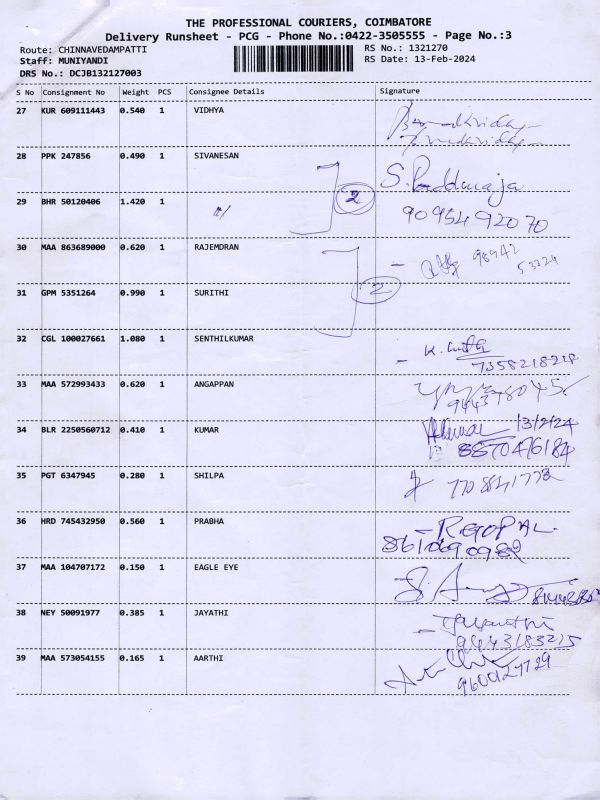 THE PROFESSIONAL COURIERS, COIMBATORE
Delivery Runsheet - PCG - Phone No.:0422-3505555 - Page No.:3
Route: CHINNAVEDAMPATTI RS No.: 1321270
Staff: MUNIYANDI RS Date: 13-Feb-2024
DRS No.: DCJB132127003
S No Consignment No Weight PCS Consignee Details Signature
27 KUR 609111443 0.540 1 VIDHYA
28 PPK 247856 0.490 1 SIVANESAN
2
29 BHR 50120406 1.420 1 9095492070
30 MAA 863689000 0.620 1 RAJEMDRAN 98942
53224
31 GPM 5351264 0.990 1 SURITHI 2
32 CGL 100027661 1.080 1 SENTHILKUMAR K.
7358218218
33 MAA 572993433 0.620 1 ANGAPPAN
34 BLR 2250560712 0.410 1 KUMAR 13/2/24
8870476184
35 PGT 6347945 0.280 1 SHILPA
36 HRD 745432950 0.560 1 PRABHA
37 MAA 104707172 0.150 1 EAGLE EYE
38 NEY 50091977 0.385 1 JAYATHI Jayanthi
9443183215
39 MAA 573054155 0.165 1 AARTHI